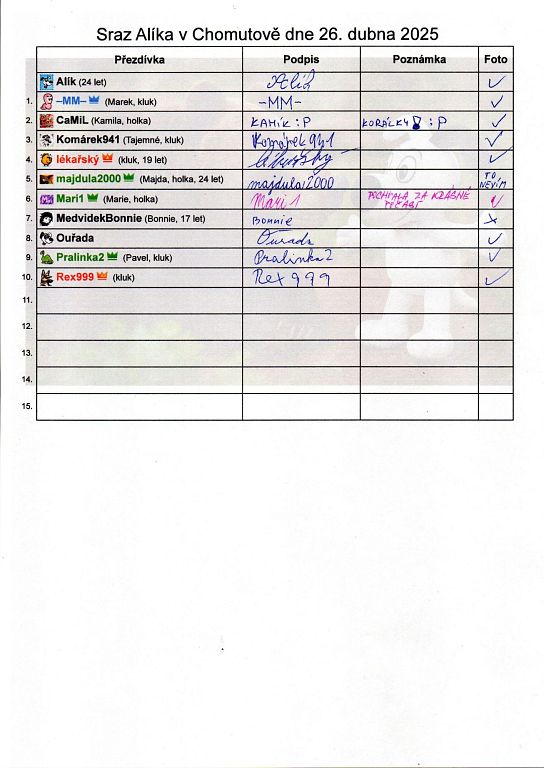 Sraz Alíka v Chomutově dne 26. dubna 2025
Přezdívka Podpis Poznámka Foto
Alík (24 let) Alík ✓
1. –MM– (Marek, kluk) –MM– ✓
2. CaMiL (Kamila, holka) KAMÍK :P KORÁLKY :P ✓
3. Komárek941 (Tajemné, kluk) Komárek 941 ✓
4. lékařský (kluk, 19 let) ✓
5. majdula2000 (Majda, holka, 24 let) majdula2000 TO NEVÍM
6. Mari1 (Marie, holka) Mari1 POCHVALA ZA KRÁSNÉ POČASÍ ✓
7. MedvidekBonnie (Bonnie, 17 let) BONNIE ×
8. Ouřada Ouřada ✓
9. Pralinka2 (Pavel, kluk) Pralinka2 ✓
10. Rex999 (kluk) Rex999 ✓
11.
12.
13.
14.
15.